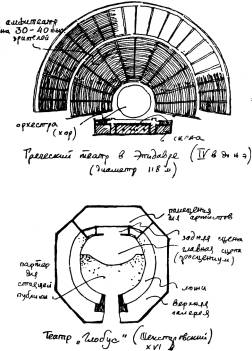 амфитеатр
на 30-40 тыс.
зрителей
орхестра
(хор)
скена
Греческий театр в Эпидавре (IV в до н э)
(диаметр 118 м)
помещения
для артистов
задняя сцена
главная сцена
(просцениум)
партер
для
стоящей
публики
ложи
верхняя
галерея
Театр „Глобус" (Шекспировский)
XVI в